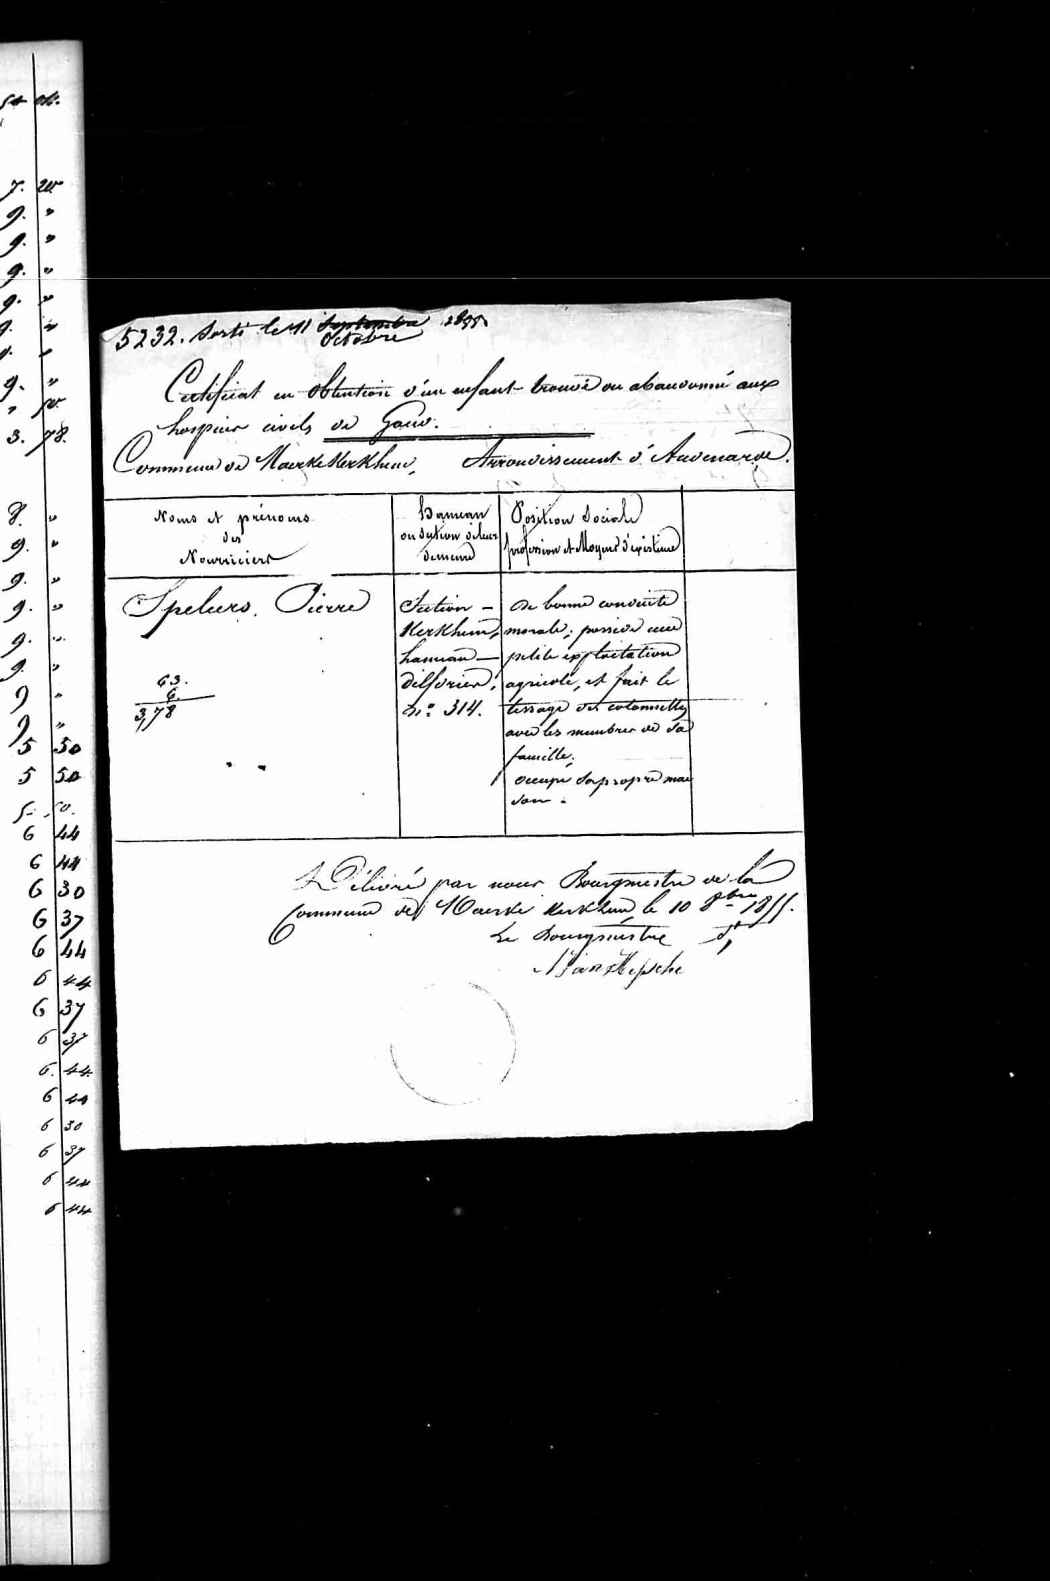 5232. Sorti le 11 Septembre 1855
Octobre
Certificat en obtention d'un enfant trouvé ou abandonné aux
hospices civils de Gand.
Commune de Maerke Kerkhem, Arrondissement d'Audenarde.
Noms et prénoms
des
Nourriciers
Hameau
ou section de leur
demeure
Position Sociale
profession et Moyens d'existence
Speleers, Pierre
Section -
Kerkhem,
hameau -
n.º 314.
De bonne conduite
morale; possède une
petite exploitation
agricole, et fait le
tissage des cotonnettes
avec les membres de sa
famille.
occupe sa propre mai
son.
63.
6.
3,78
Délivré par nous Bourgmestre de la
Commune de Maerke Kerkhem, le 10 8bre 1855.
Le Bourgmestre
7.
9. "
9. "
9. "
9. "
9. "
3. 78.
8. "
9. "
9. "
9. "
9. "
9. "
9 "
9 "
5 50
5 50
5. 50.
6 44
6 44
6 30
6 37
6 44
6 44
6 37
6 37
6. 44.
6 44
6 30
6 37
6 44
6 44